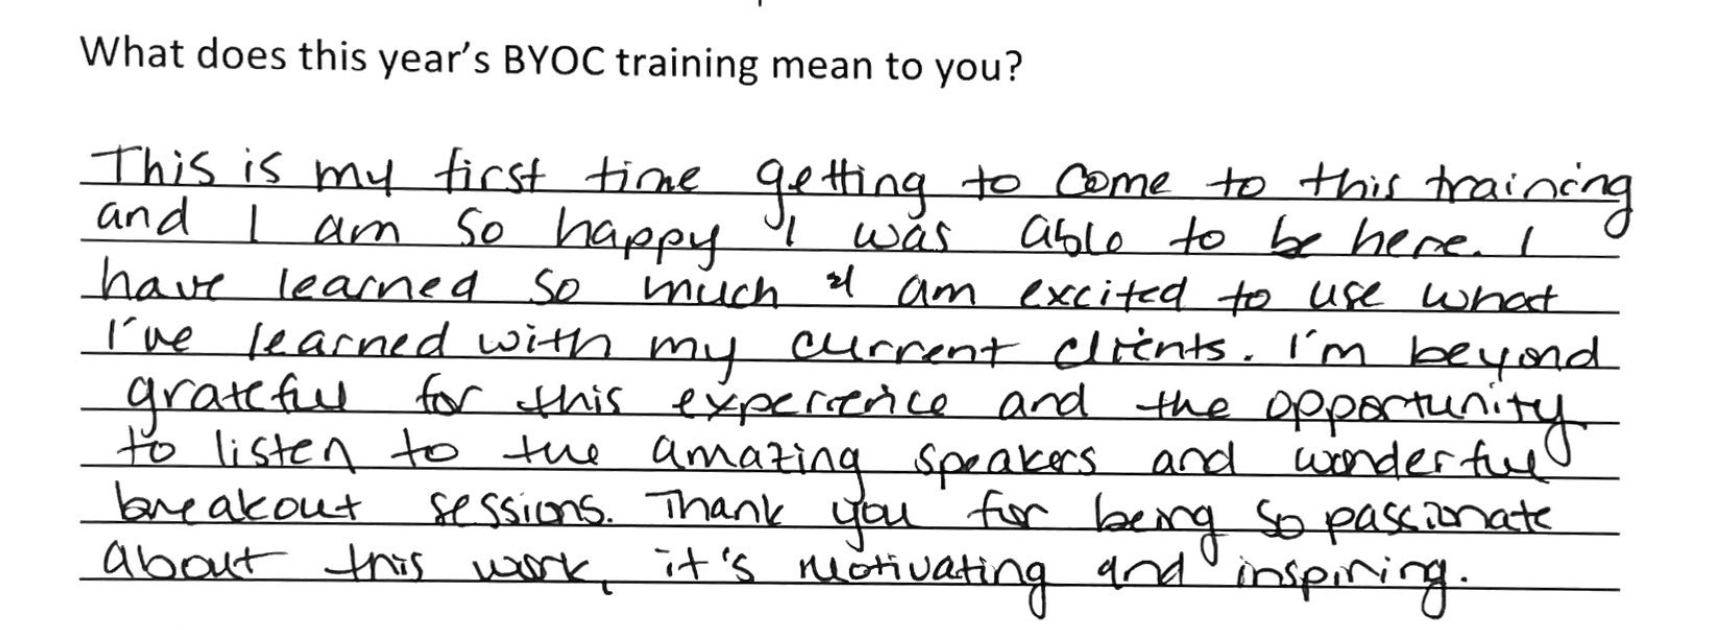 What does this year's BYOC training mean to you?
This is my first time getting to come to this training
and I am so happy I was able to be here. I
have learned so much & am excited to use what
I've learned with my current clients. I'm beyond
grateful for this experience and the opportunity
to listen to the amazing speakers and wonderful
breakout sessions. Thank you for being so passionate
about this work, it's motivating and inspiring.